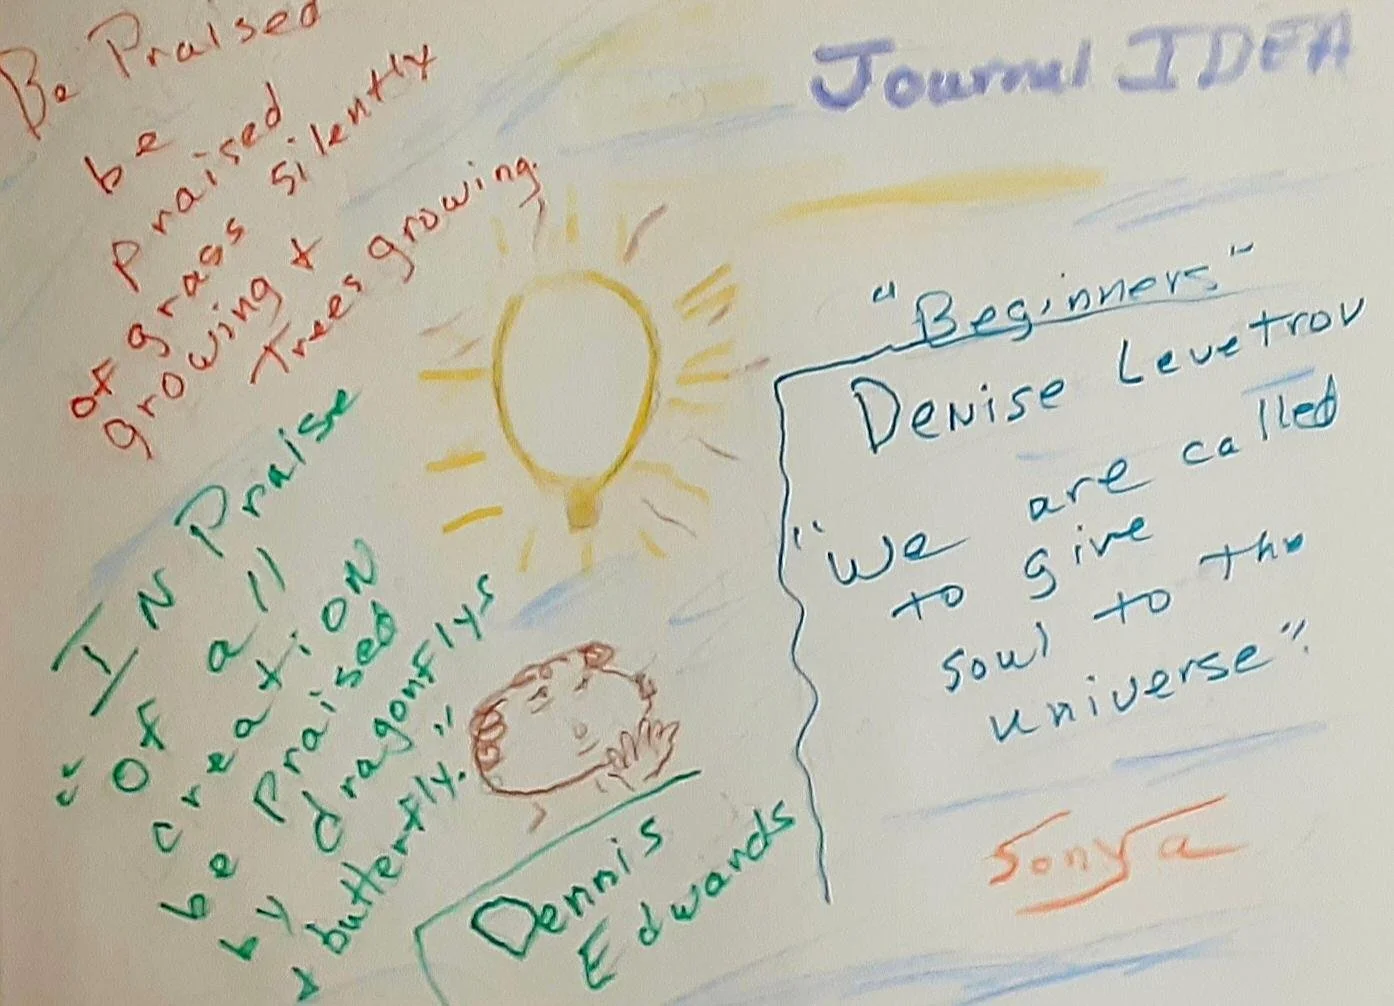 Be Praised
be
Praised
of grass silently
growing +
Trees growing.
Journal IDEA
"Beginners"
Denise Levetrov
"We are called
to give
soul to the
universe".
Sonya
"IN Praise
of all
creatiON
be Praised
by dragonflys
+ butterfly."
Dennis
Edwards